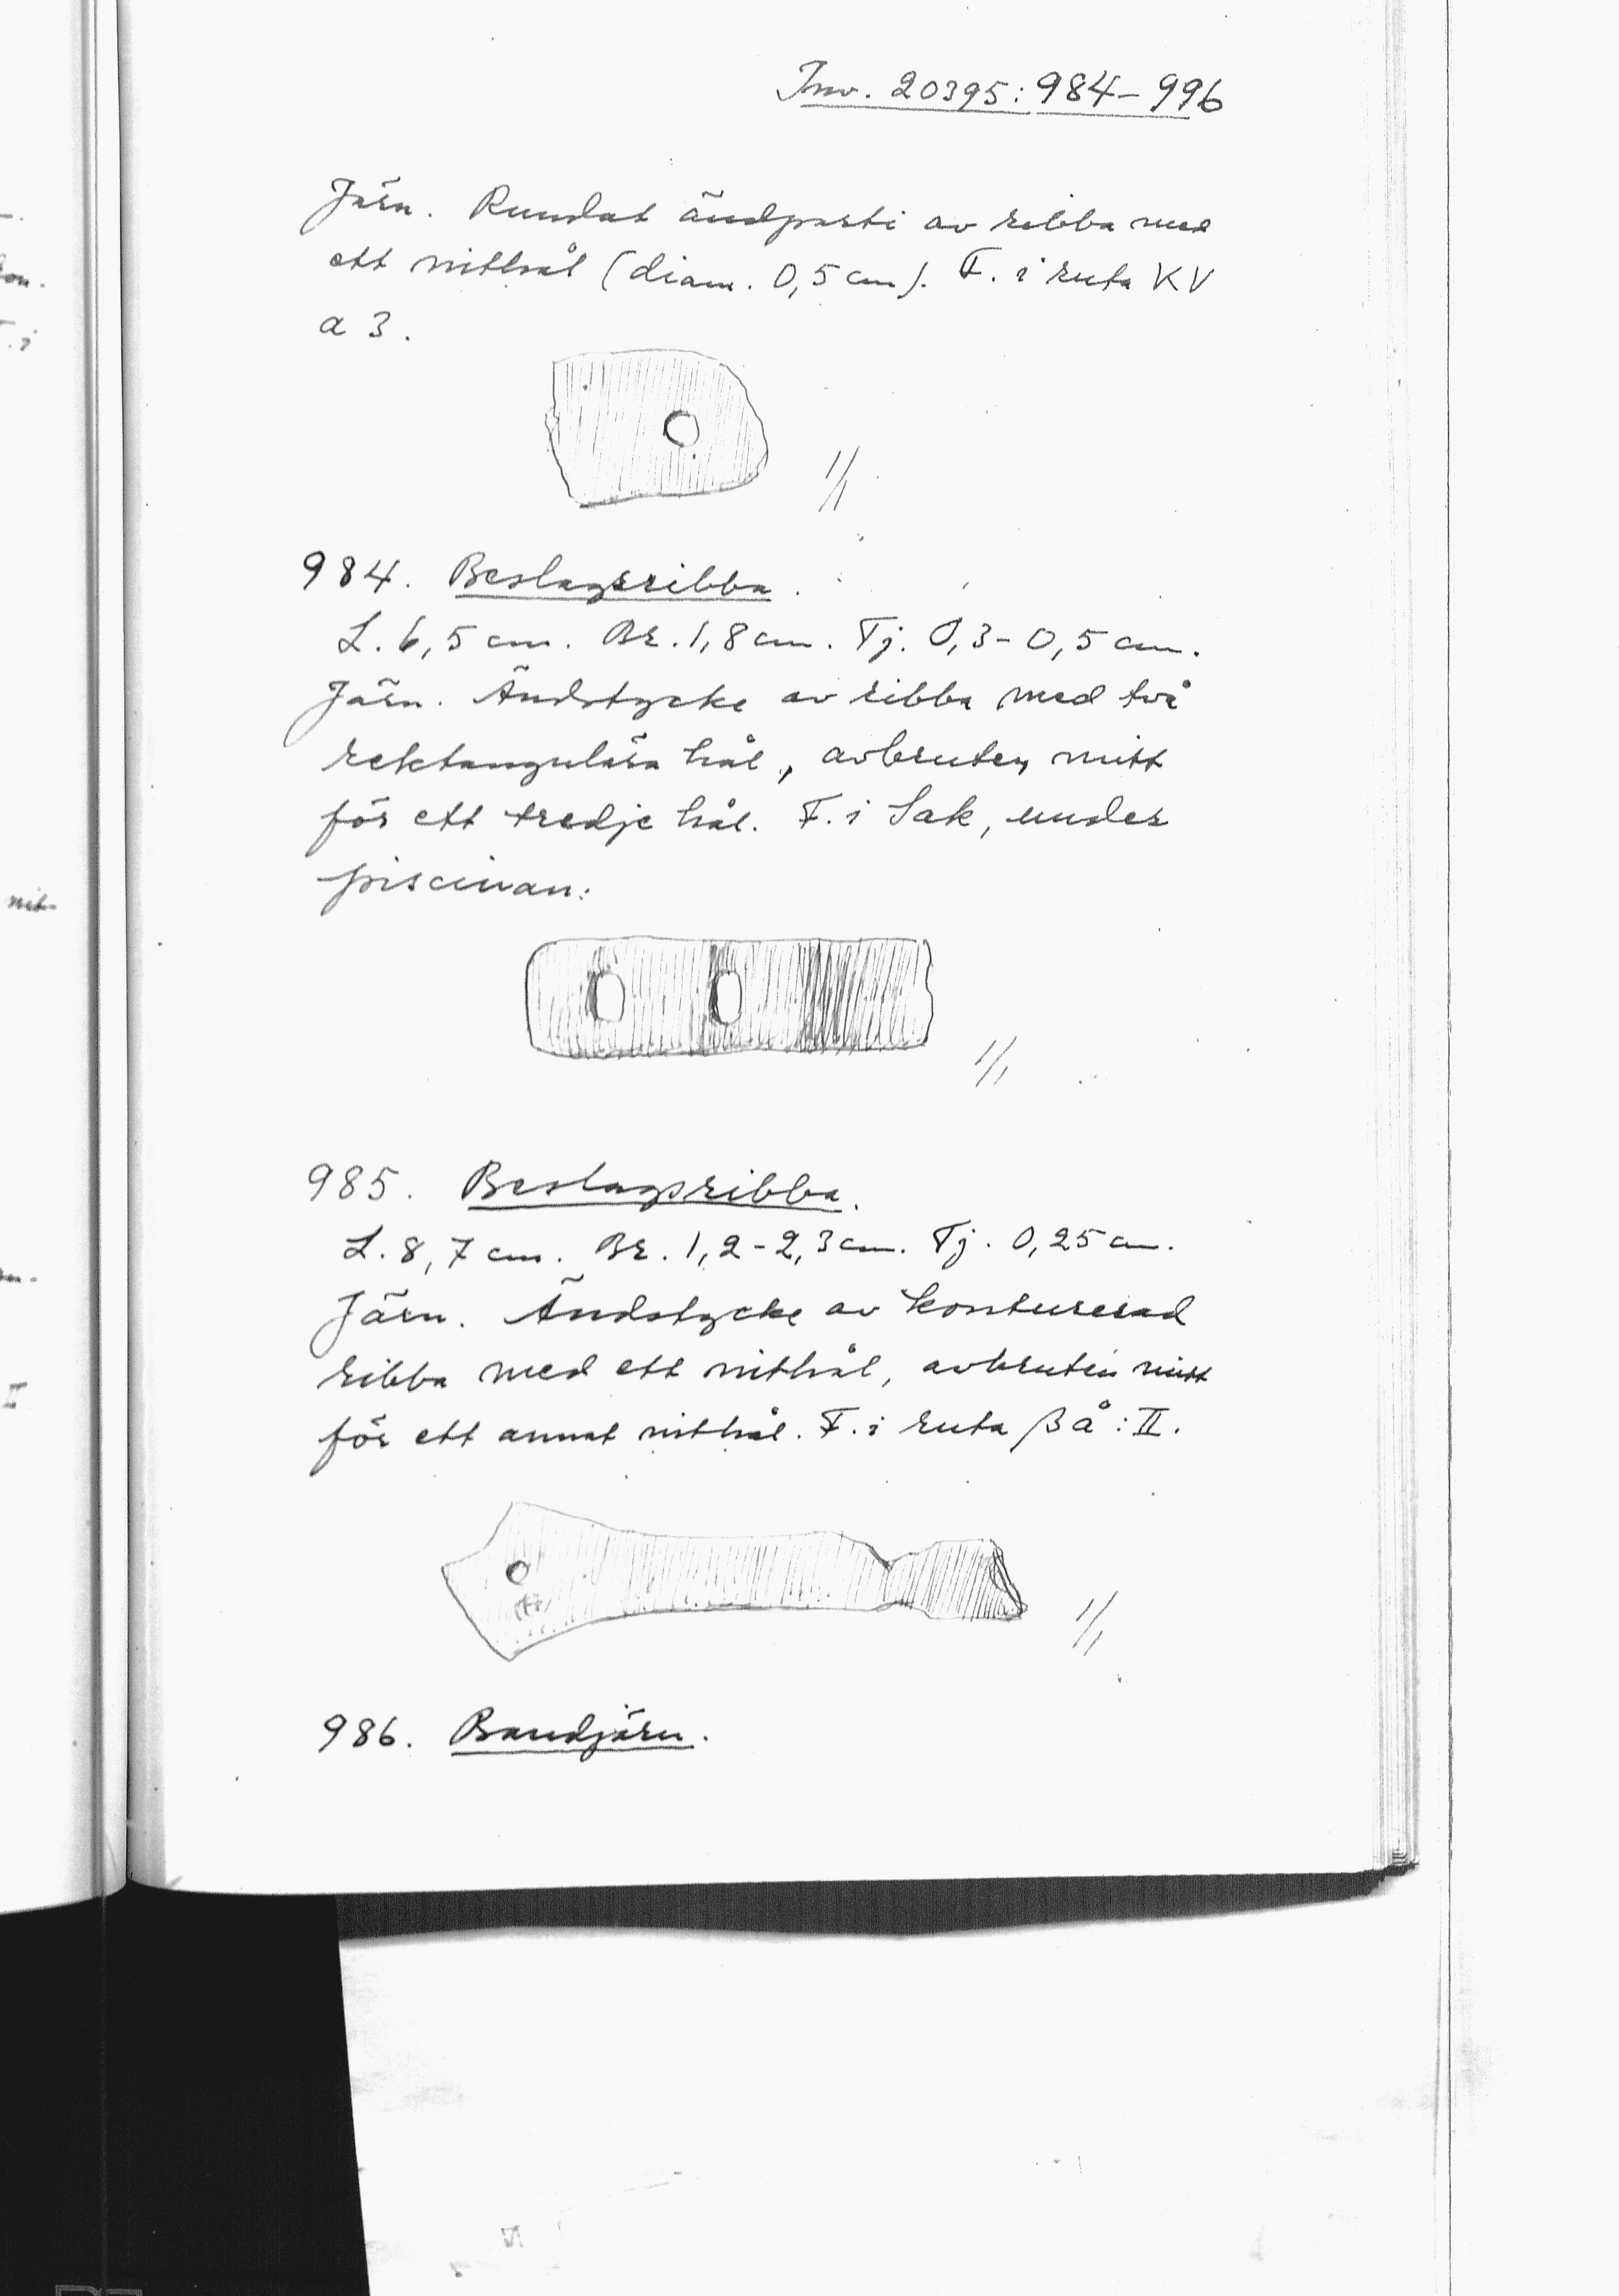 Inv. 20395: 984-996
Järn. Rundat ändparti av ribba med
ett nithål (diam. 0,5 cm). F. i ruta KV
a 3.
1/1
984. Beslagsribba.
L. 6,5 cm. Br. 1,8 cm. Tj. 0,3-0,5 cm.
Järn. Ändstycke av ribba med två
rektangulära hål, avbruten mitt
för ett tredje hål. F. i Sak, under
piscinan:
1/1
985. Beslagsribba.
L. 8,7 cm. Br. 1,2-2,3 cm. Tj. 0,25 cm.
Järn. Ändstycke av konturerad
ribba med ett nithål, avbruten mitt
för ett annat nithål. F. i ruta β å: II.
1/1
986. Bandjärn.
nit-
II